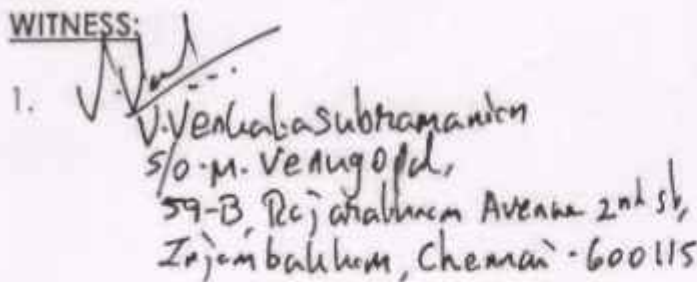 WITNESS:
1.
V. Venkatasubramanian
S/o. M. Venugopal,
59-B, Rajarathnam Avenue 2nd St,
Injambakkam, Chennai - 600115